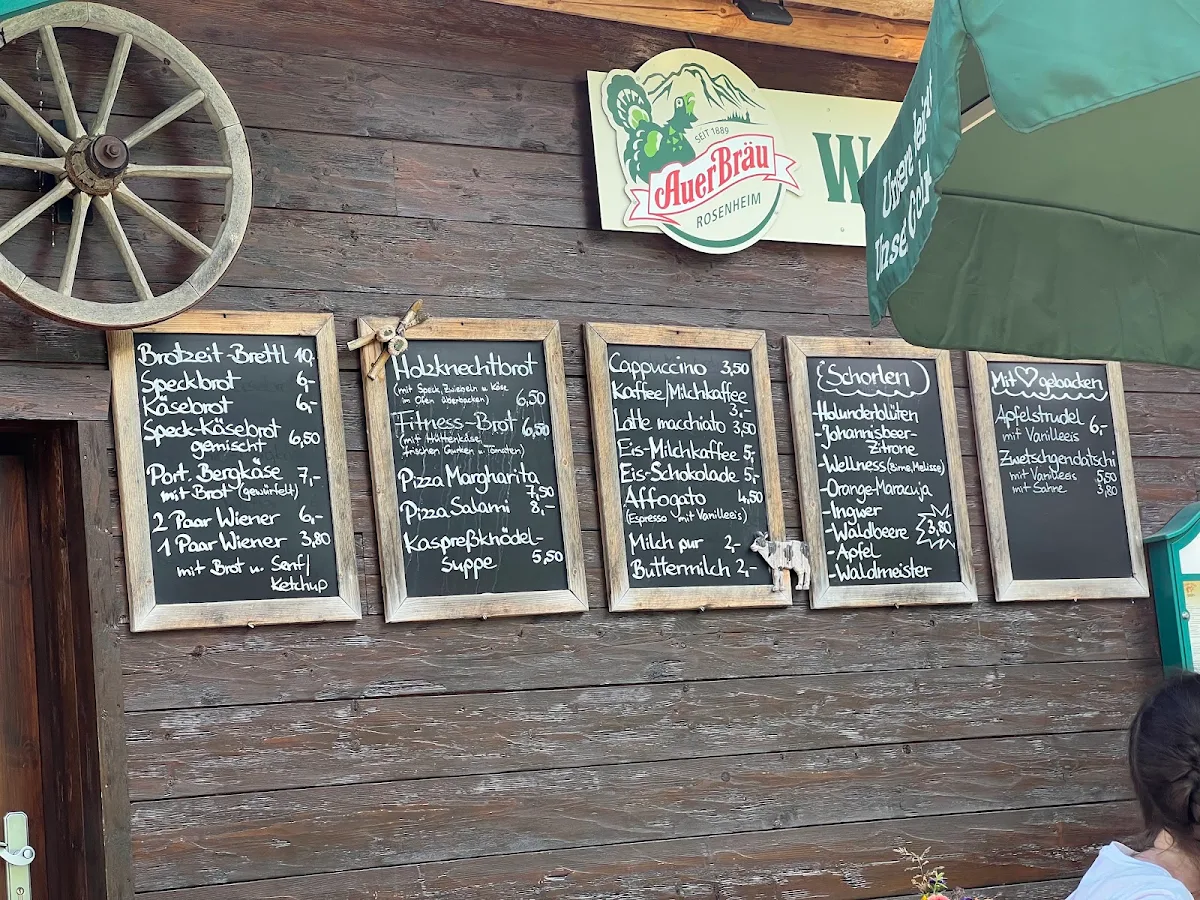 SEIT 1889
AuerBräu
ROSENHEIM
W
Unsere
Unse
Brotzeit-Brettl 10,-
Speckbrot 6,-
Käsebrot 6,-
Speck-Käsebrot
gemischt 6,50
Port. Bergkäse 7,-
mit Brot (gewürfelt)
2 Paar Wiener 6,-
1 Paar Wiener 3,80
mit Brot u. Senf/
Ketchup
Holzknechtbrot
(mit Speck, Zwiebeln u. Käse
im Ofen überbacken) 6,50
Fitness-Brot 6,50
(mit Hüttenkäse,
frischen Gurken u. Tomaten)
Pizza Margharita
7,50
Pizza Salami 8,-
Kaspreßknödel-
suppe 5,50
Cappuccino 3,50
Kaffee/Milchkaffee
3,-
Latte macchiato 3,50
Eis-Milchkaffee 5,-
Eis-Schokolade 5,-
Affogato 4,50
(Espresso mit Vanilleeis)
Milch pur 2,-
Buttermilch 2,-
Schorlen
-Holunderblüten
-Johannisbeer-
Zitrone
-Wellness (Birne, Melisse)
-Orange-Maracuja
-Ingwer
-Waldbeere 3,80
-Apfel
-Waldmeister
Mit ♡ gebacken
Apfelstrudel 6,-
mit Vanilleeis
Zwetschgendatschi
mit Vanilleeis 5,50
mit Sahne 3,80